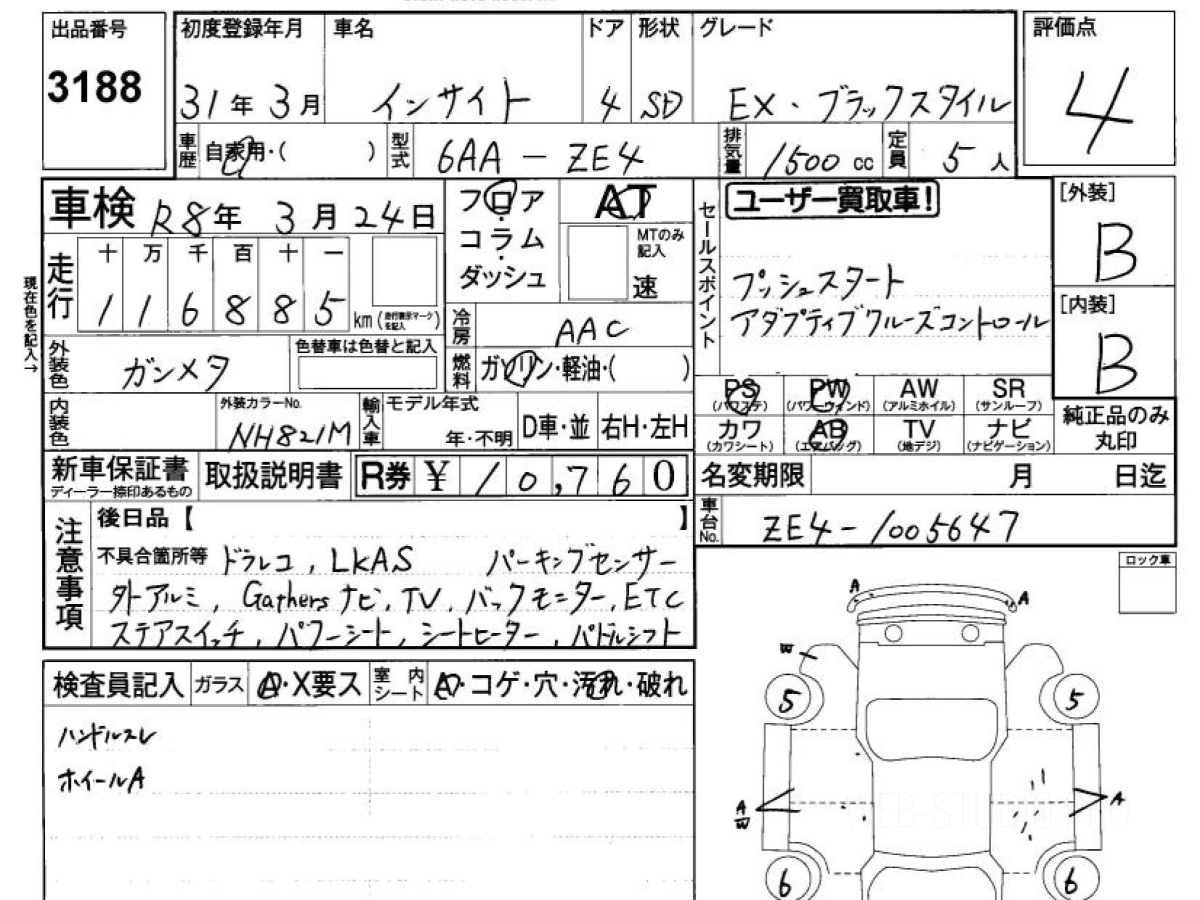 出品番号
3188
初度登録年月 車名 ドア 形状 グレード
31年3月 インサイト 4 SD EX・ブラックスタイル
評価点
4
車歴 自家用・( ) 型式 6AA-ZE4 排気量 1500cc 定員 5人
車検 R8年3月24日
フロア・コラム・ダッシュ
AT
MTのみ記入
速
セールスポイント
ユーザー買取車!
プッシュスタート
アダプティブクルーズコントロール
[外装]
B
[内装]
B
現在色を記入→
走行 十 万 千 百 十 一
116885km(走行表示マークを記入)
冷房 AAC
燃料 ガソリン・軽油・( )
外装色 ガンメタ
色替車は色替と記入
内装色 外装カラーNo. NH821M
輸入車 モデル年式 年・不明 D車・並 右H・左H
PS(パワステ) PW(パワーウィンド) AW(アルミホイル) SR(サンルーフ)
カワ(カワシート) AB(エアバッグ) TV(地デジ) ナビ(ナビゲーション)
純正品のみ丸印
新車保証書 ディーラー捺印あるもの 取扱説明書 R券 ¥10,760
名変期限 月 日迄
車台No. ZE4-1005647
注意事項
後日品【 】
不具合箇所等 ドラレコ, LKAS パーキングセンサー
外アルミ, Gathersナビ, TV, バックモニター, ETC
ステアスイッチ, パワーシート, シートヒーター, パドルシフト
ロック車
検査員記入 ガラス A・X要ス 室内シート A・コゲ・穴・汚れ・破れ
ハンドルスレ
ホイールA
A A
W
5 5
A
W
A
6 6